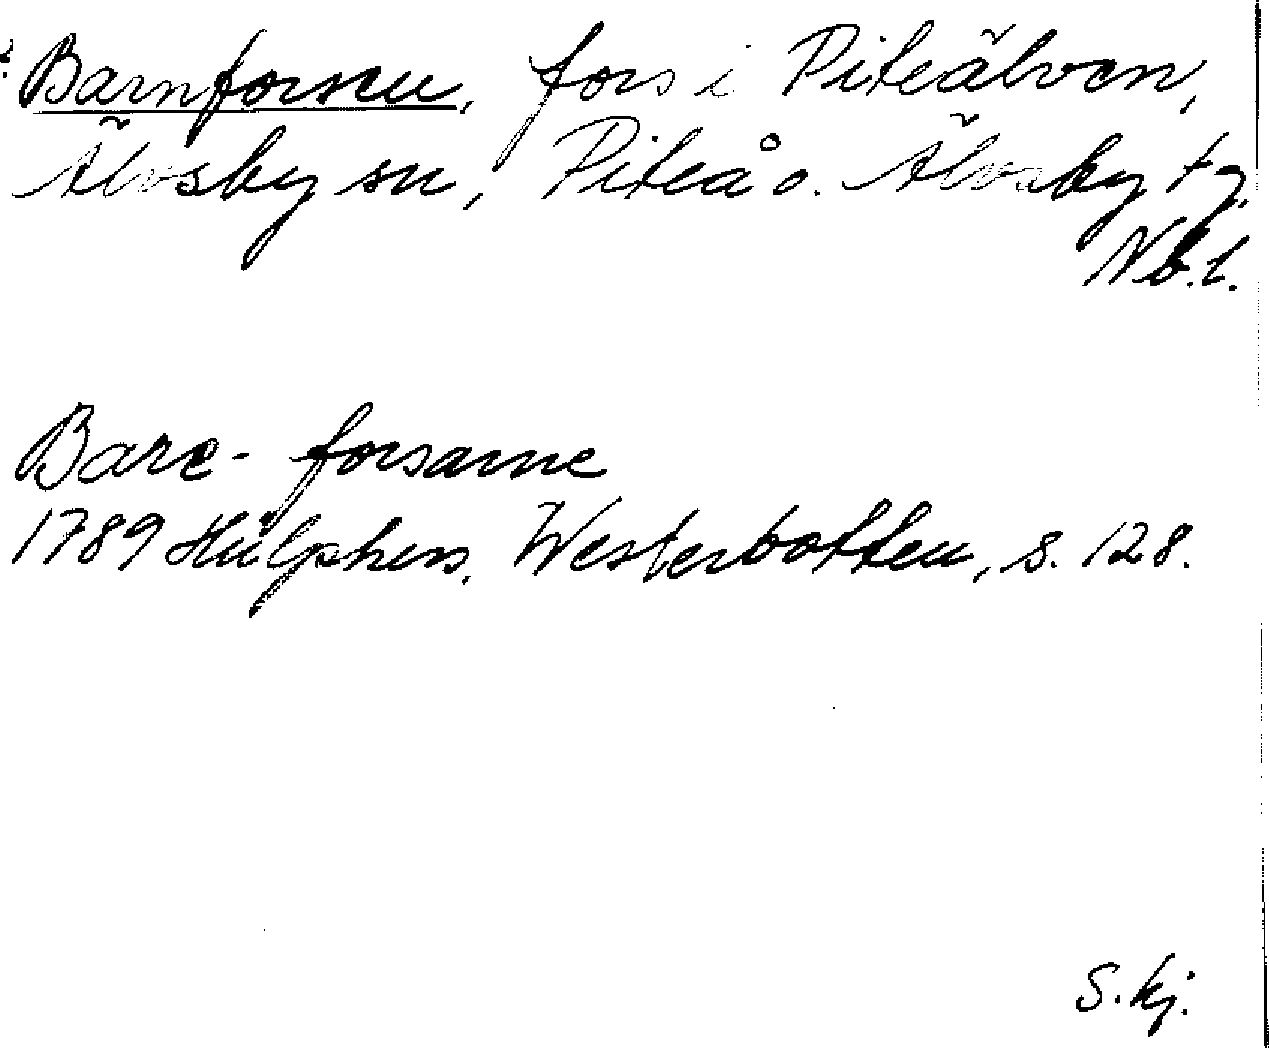 Barnforsen, fors i Piteälven,
Älvsby sn, Piteå o. Älvsby tg.
Nb.l.
Bare- forsarne
1789 Hülphers, Westerbotten, s. 128.
S. kj.